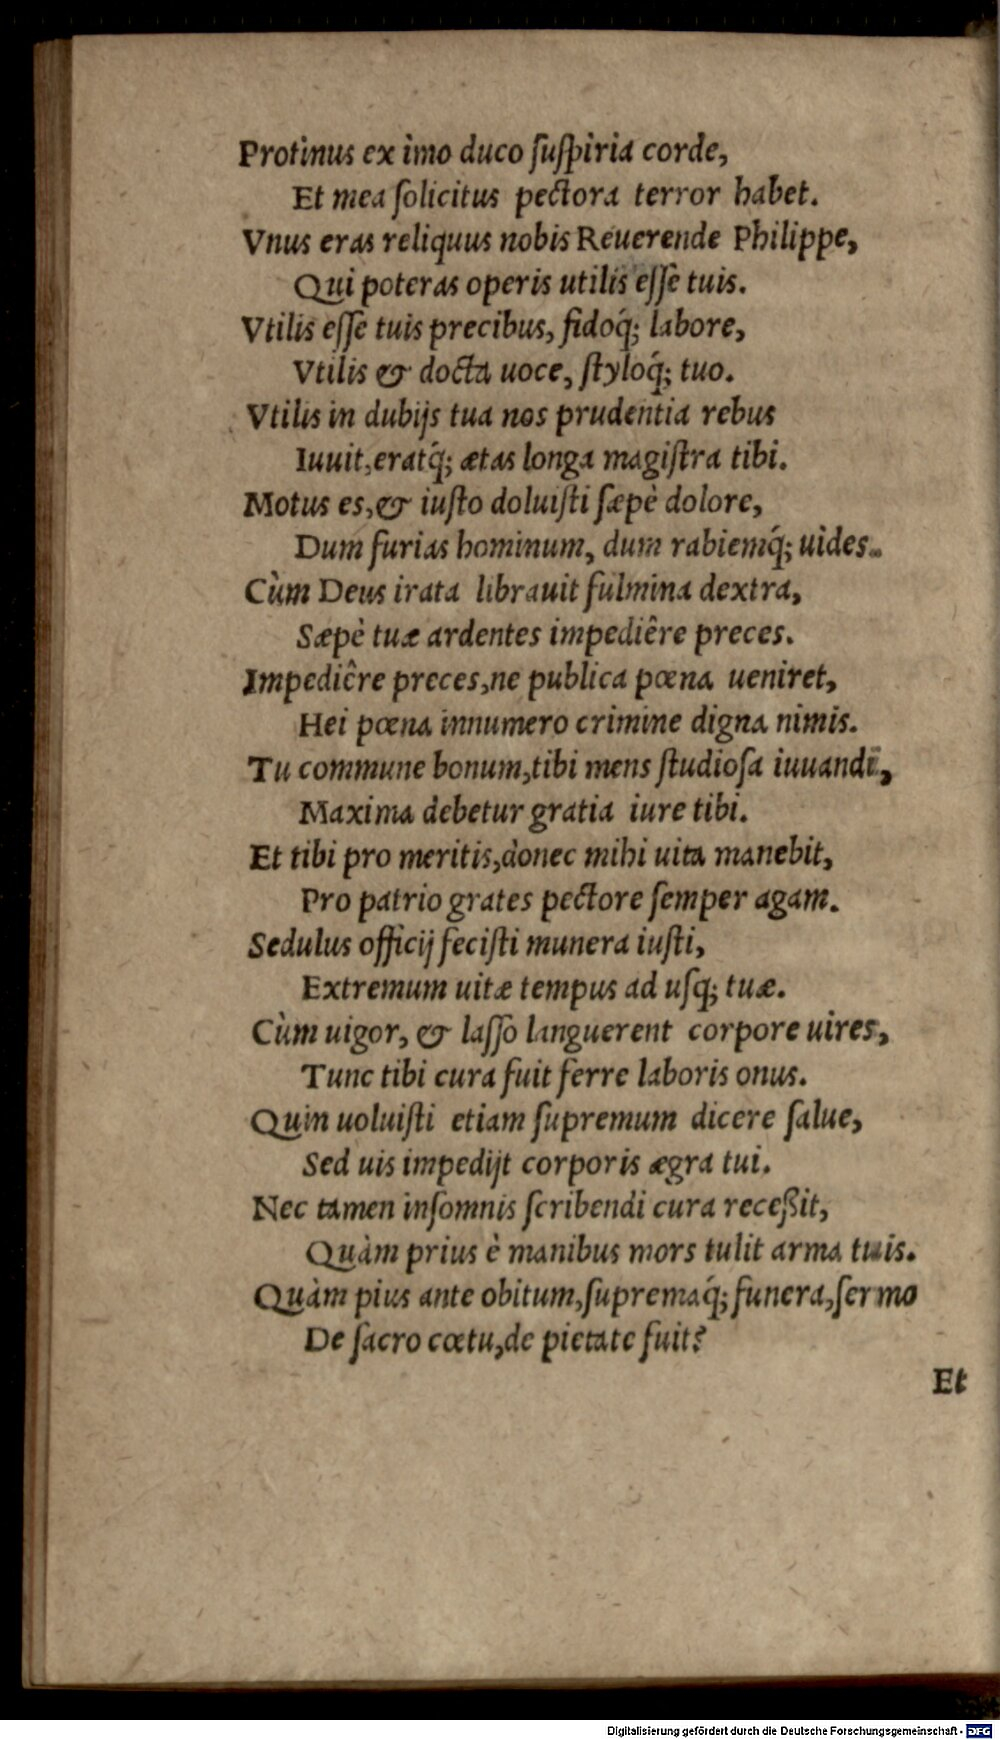 Protinus ex imo duco ſuſpiria corde,
Et mea ſolicitus pectora terror habet.
Vnus eras reliquus nobis Reuerende Philippe,
Qui poteras operis utilis eſſe tuis.
Vtilis eſſe tuis precibus, fidoq́; labore,
Vtilis & docta uoce, ſtyloq́; tuo.
Vtilis in dubijs tua nos prudentia rebus
Iuuit, eratq́; ætas longa magiſtra tibi.
Motus es, & iuſto doluiſti ſæpè dolore,
Dum furias hominum, dum rabiemq́; uides.
Cùm Deus irata librauit fulmina dextra,
Sæpè tuæ ardentes impediêre preces.
Impediêre preces, ne publica pœna ueniret,
Hei pœna innumero crimine digna nimis.
Tu commune bonum, tibi mens ſtudioſa iuuandi,
Maxima debetur gratia iure tibi.
Et tibi pro meritis, donec mihi uita manebit,
Pro patrio grates pectore ſemper agam.
Sedulus officij feciſti munera iuſti,
Extremum uitæ tempus ad uſq; tuæ.
Cùm uigor, & laſſo languerent corpore uires,
Tunc tibi cura fuit ferre laboris onus.
Quin uoluiſti etiam ſupremum dicere ſalue,
Sed uis impedijt corporis ægra tui.
Nec tamen inſomnis ſcribendi cura receßit,
Quàm prius è manibus mors tulit arma tuis.
Quàm pius ante obitum, ſupremaq́; funera, ſermo
De ſacro cœtu, de pietate fuit?
Et
Digitalisierung gefördert durch die Deutsche Forschungsgemeinschaft - DFG